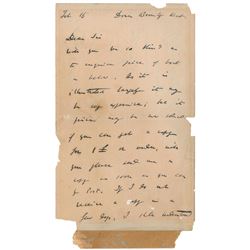 Feb 16 Down Beckenham Kent
Dear Sir
Will you be so kind as
to enquire price of book
as below. As it is
illustrated largely it may
be very expensive; but it
price may be
if you can get a copy
for 1£ or under, will
you please send me a
copy as soon as you can
by Post. If I do not
receive a copy in a
few days, I shall understand